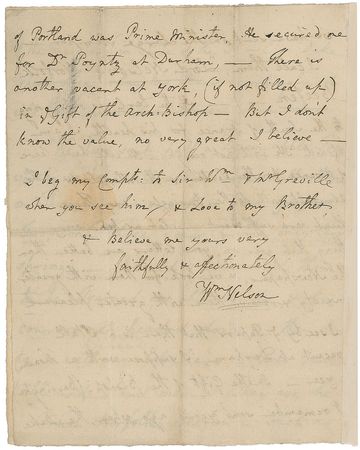 of Portland was Prime Minister. He secured one
for Dr Poyntz at Durham, — There is
another vacant at York, (if not filled up)
in ye Gift of the ArchBishop — But I don't
know the value, no very great I believe —
I beg my Compts: to Sir Wm & Mr Greville
when you see him, & Love to my Brother,
& Believe me yours very
faithfully & affectionately
Wm Nelson